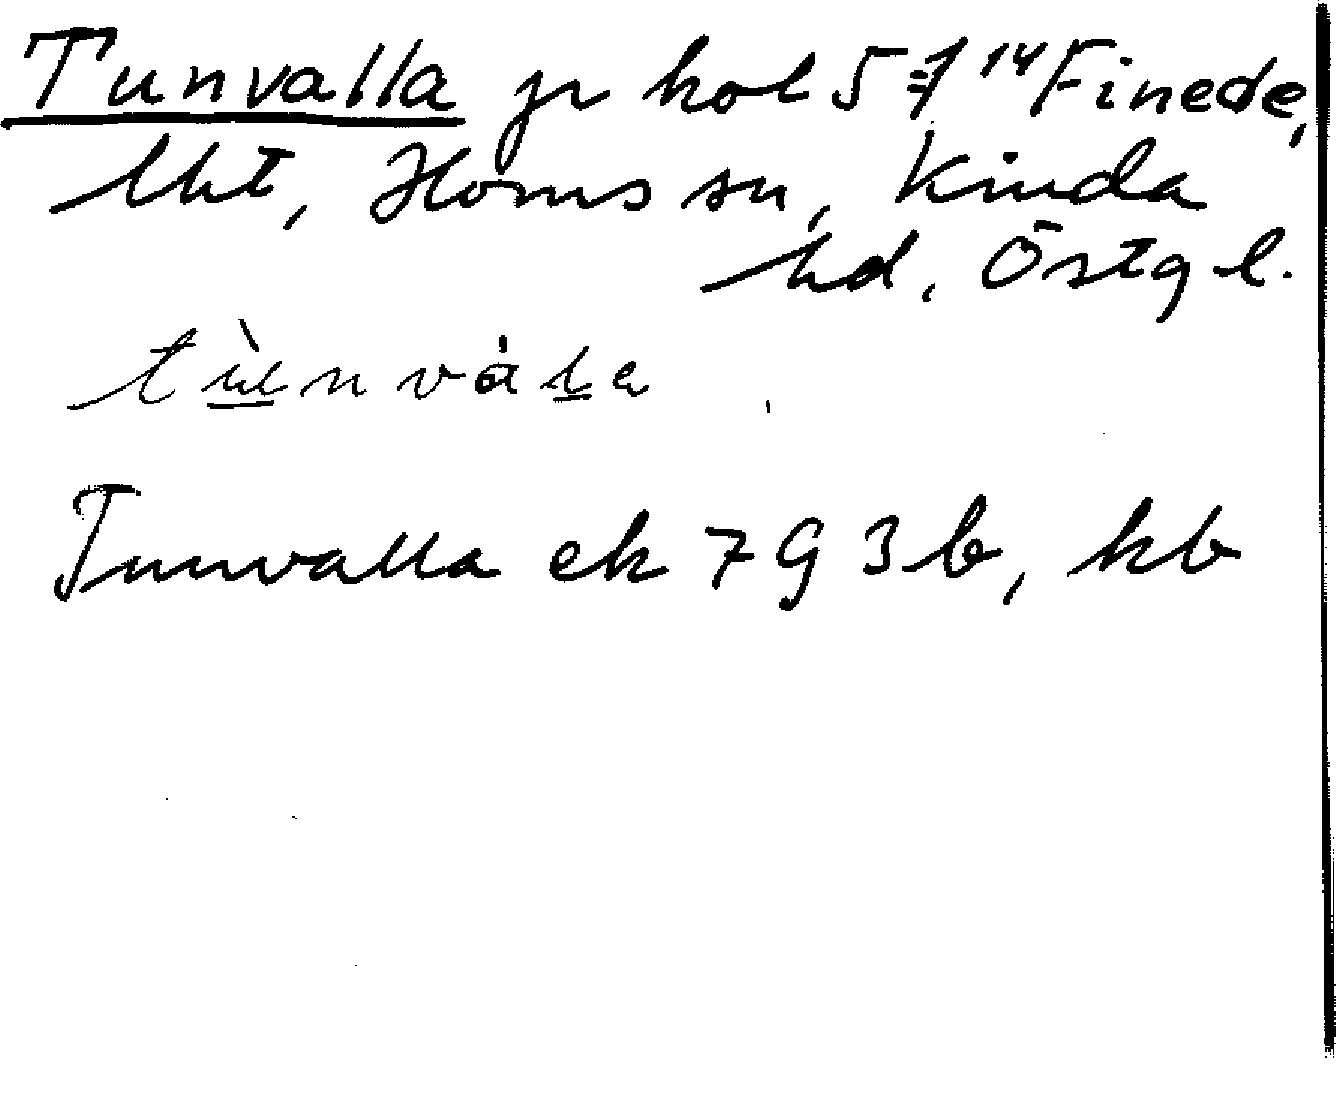 Tunvalla gr kol 5=1 14 Finede,
lht, Horns sn, Kinda
hd, Östg l.
tùnvála
Tunvalla ek 7 G 3 b, kb